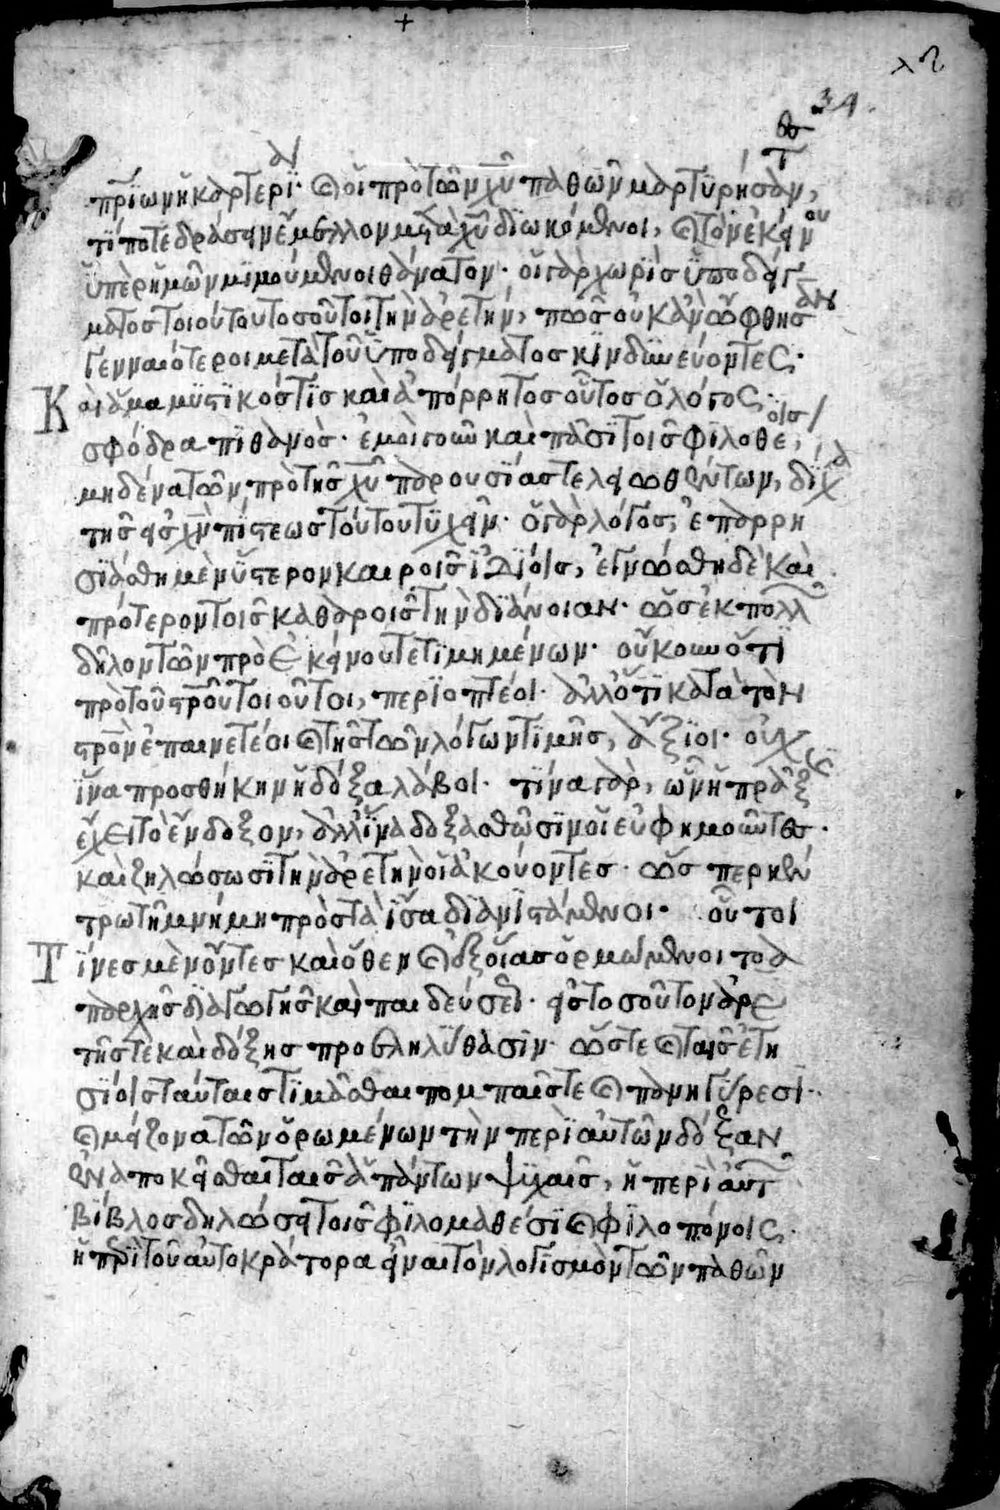 λδ
34
πρΐων ἢ καρτερΐ· καὶ οἱ πρὸ τῶν χυ παθῶν μαρτϋρήσαν,
τΐ ποτε δράσειν ἔμελλον μετὰ χν διωκόμενοι, καὶ τὸν ἐκείνου
ὑπὲρ ἡμῶν μιμούμενοι θάνατον· οἱ γὰρ χωρὶς ὑποδείγ
ματος τοιούτου τοσοῦτοι τὴν ἀρετήν, πῶς οὐκ ἂν ὤφθησαν
γενναιότεροι μετὰ τοῦ ὑποδείγματος κινδυνεύοντες·
Καὶ ἅμα μυστικός τις καὶ ἀπόρρητος οὗτος ὁ λόγος·
σφόδρα πιθανὸς· ἐμοὶ γοῦν καὶ πᾶσι τοῖς φιλοθέοις,
μηδένα τῶν πρὸ τῆς χυ παρουσίας τελειωθέντων, δίχα
τῆς εἰς χν πίστεως τούτου τυχεῖν· ὁ γὰρ λόγος, ἐπαρρη
σιάσθη μὲν ὕστερον καιροῖς ἰδίοις, ἐγνώσθη δὲ καὶ
πρότερον τοῖς καθαροῖς τὴν διάνοιαν· ὡς ἐκ πολλῶν
δῆλον τῶν πρὸ ἐκείνου τετιμημένων· οὔκουν ὅτι
πρὸ τοῦ σταυροῦ τοιοῦτοι, περιοπτέοι· ἀλλ' ὅτι κατὰ τὸν
σταυρὸν ἐπαινετέοι καὶ τῆς τῶν λόγων τιμῆς, ἄξιοι· οὐχ
ἵνα προσθήκην ἡ δόξα λάβοι· τίνα γὰρ, ὧν ἡ πρᾶξις
ἔχει τὸ ἔνδοξον, ἀλλ' ἵνα δοξασθῶσιν οἱ εὐφημοῦντες·
καὶ ζηλώσωσι τὴν ἀρετὴν οἱ ἀκούοντες· ὥσπερ κέν
τρω τῆ μνήμη πρὸς τὰ ἴσα διανιστάμενοι· οὗτοι
Τΐνες μὲν ὄντες καὶ ὅθεν καὶ ἐξ οἵας ὁρμώμενοι τὸ ἀ
παρχῆς διαγωγῆς καὶ παιδεύσεως· εἰς τοσοῦτον ἀρε
τῆς τὲ καὶ δόξης προεληλύθασιν· ὥστε καὶ ταῖς ἐτη
σίοις ταύταις τιμᾶσθαι πομπαῖς τε καὶ πανηγύρεσι·
καὶ μείζονα τῶν ὁρωμένων τὴν περὶ αὐτῶν δόξαν
ἐναποκεῖσθαι ταῖς ἁπάντων ψυχαῖς, ἡ περὶ αὐτῶν
βίβλος δηλώσει τοῖς φιλομαθέσι καὶ φιλοπόνοις·
ἡ περὶ τοῦ αὐτοκράτορα εἶναι τὸν λογισμὸν τῶν παθῶν